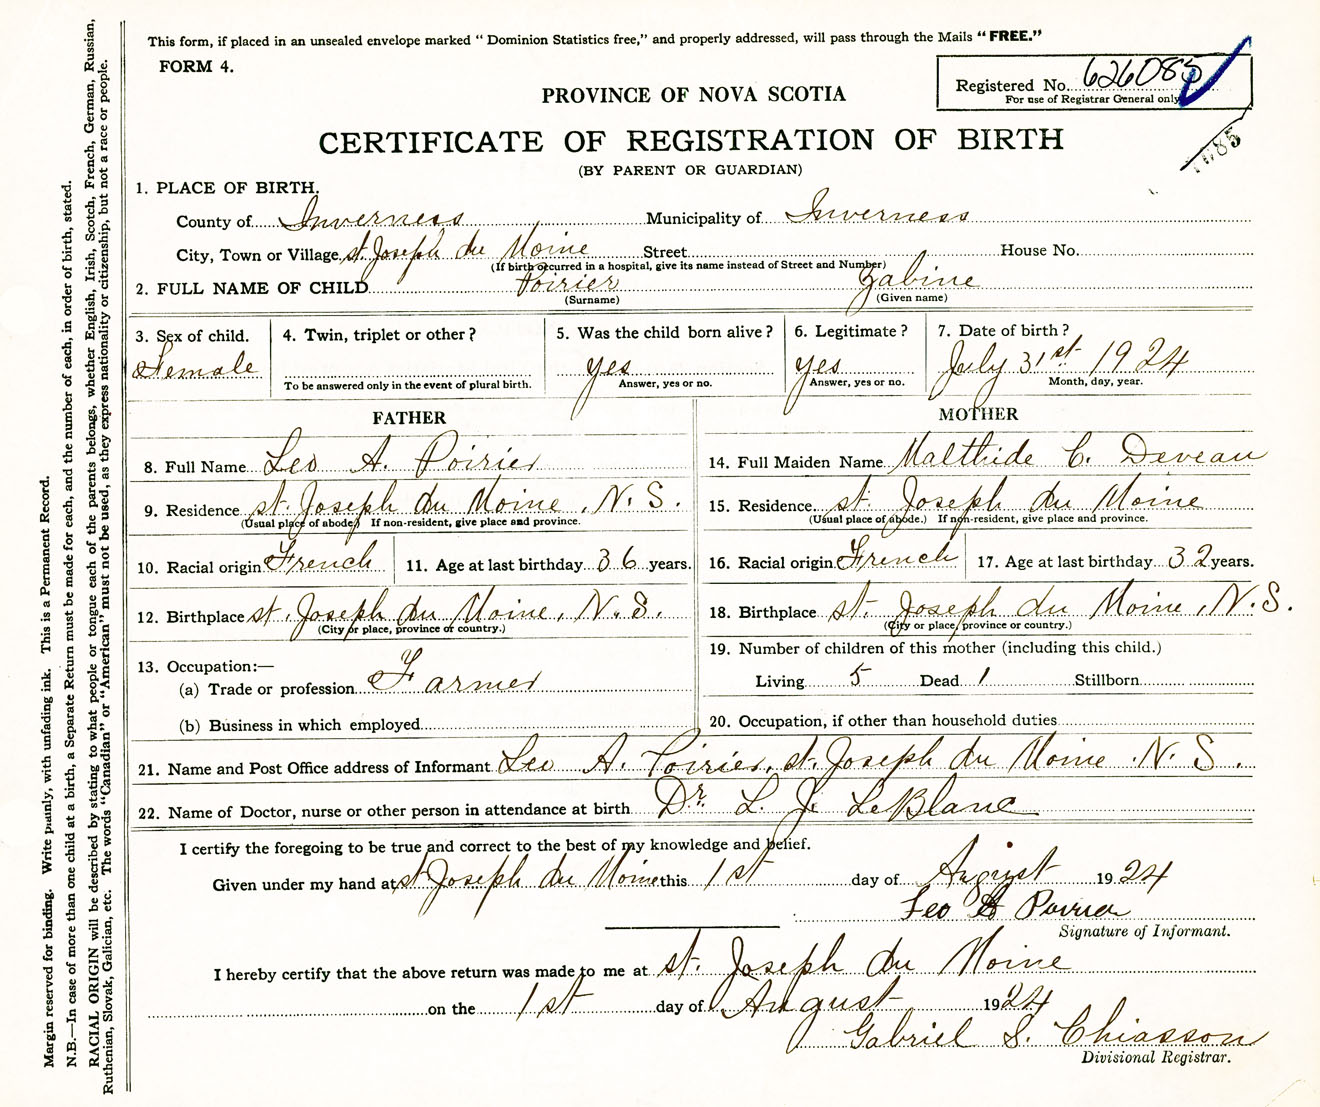 This form, if placed in an unsealed envelope marked “ Dominion Statistics free,” and properly addressed, will pass through the Mails “ FREE.”
FORM 4.
Registered No. 626085
For use of Registrar General only
PROVINCE OF NOVA SCOTIA
CERTIFICATE OF REGISTRATION OF BIRTH
(BY PARENT OR GUARDIAN)
1. PLACE OF BIRTH.
County of Inverness Municipality of Inverness
City, Town or Village st. Joseph du Moine Street House No.
(If birth occurred in a hospital, give its name instead of Street and Number)
2. FULL NAME OF CHILD Poirier Zabine
(Surname) (Given name)
3. Sex of child. 4. Twin, triplet or other? 5. Was the child born alive? 6. Legitimate? 7. Date of birth?
Female yes yes July 31st 1924
To be answered only in the event of plural birth. Answer, yes or no. Answer, yes or no. Month, day, year.
FATHER MOTHER
8. Full Name Leo A. Poirier 14. Full Maiden Name Malthide C. Deveau
9. Residence st. Joseph du Moine, N. S. 15. Residence st. Joseph du Moine
(Usual place of abode) If non-resident, give place and province. (Usual place of abode.) If non-resident, give place and province.
10. Racial origin French 11. Age at last birthday 36 years. 16. Racial origin French 17. Age at last birthday 32 years.
12. Birthplace st. Joseph du Moine, N. S. 18. Birthplace st. Joseph du Moine, N. S.
(City or place, province or country.) (City or place, province or country.)
13. Occupation:— 19. Number of children of this mother (including this child.)
(a) Trade or profession Farmer Living 5 Dead 1 Stillborn
(b) Business in which employed 20. Occupation, if other than household duties
21. Name and Post Office address of Informant Leo A. Poirier, st. Joseph du Moine N. S.
22. Name of Doctor, nurse or other person in attendance at birth Dr. L. J. LeBlanc
I certify the foregoing to be true and correct to the best of my knowledge and belief.
Given under my hand at st Joseph du Moine this 1st day of August 1924
Leo A Poirier
Signature of Informant.
I hereby certify that the above return was made to me at st. Joseph du Moine
on the 1st day of August 1924
Gabriel S. Chiasson
Divisional Registrar.
Margin reserved for binding. Write plainly, with unfading ink. This is a Permanent Record.
N.B.—In case of more than one child at a birth, a Separate Return must be made for each, and the number of each, in order of birth, stated.
RACIAL ORIGIN will be described by stating to what people or tongue each of the parents belongs, whether English, Irish, Scotch, French, German, Russian,
Ruthenian, Slovak, Galician, etc. The words “Canadian” or “American” must not be used, as they express nationality or citizenship, but not a race or people.